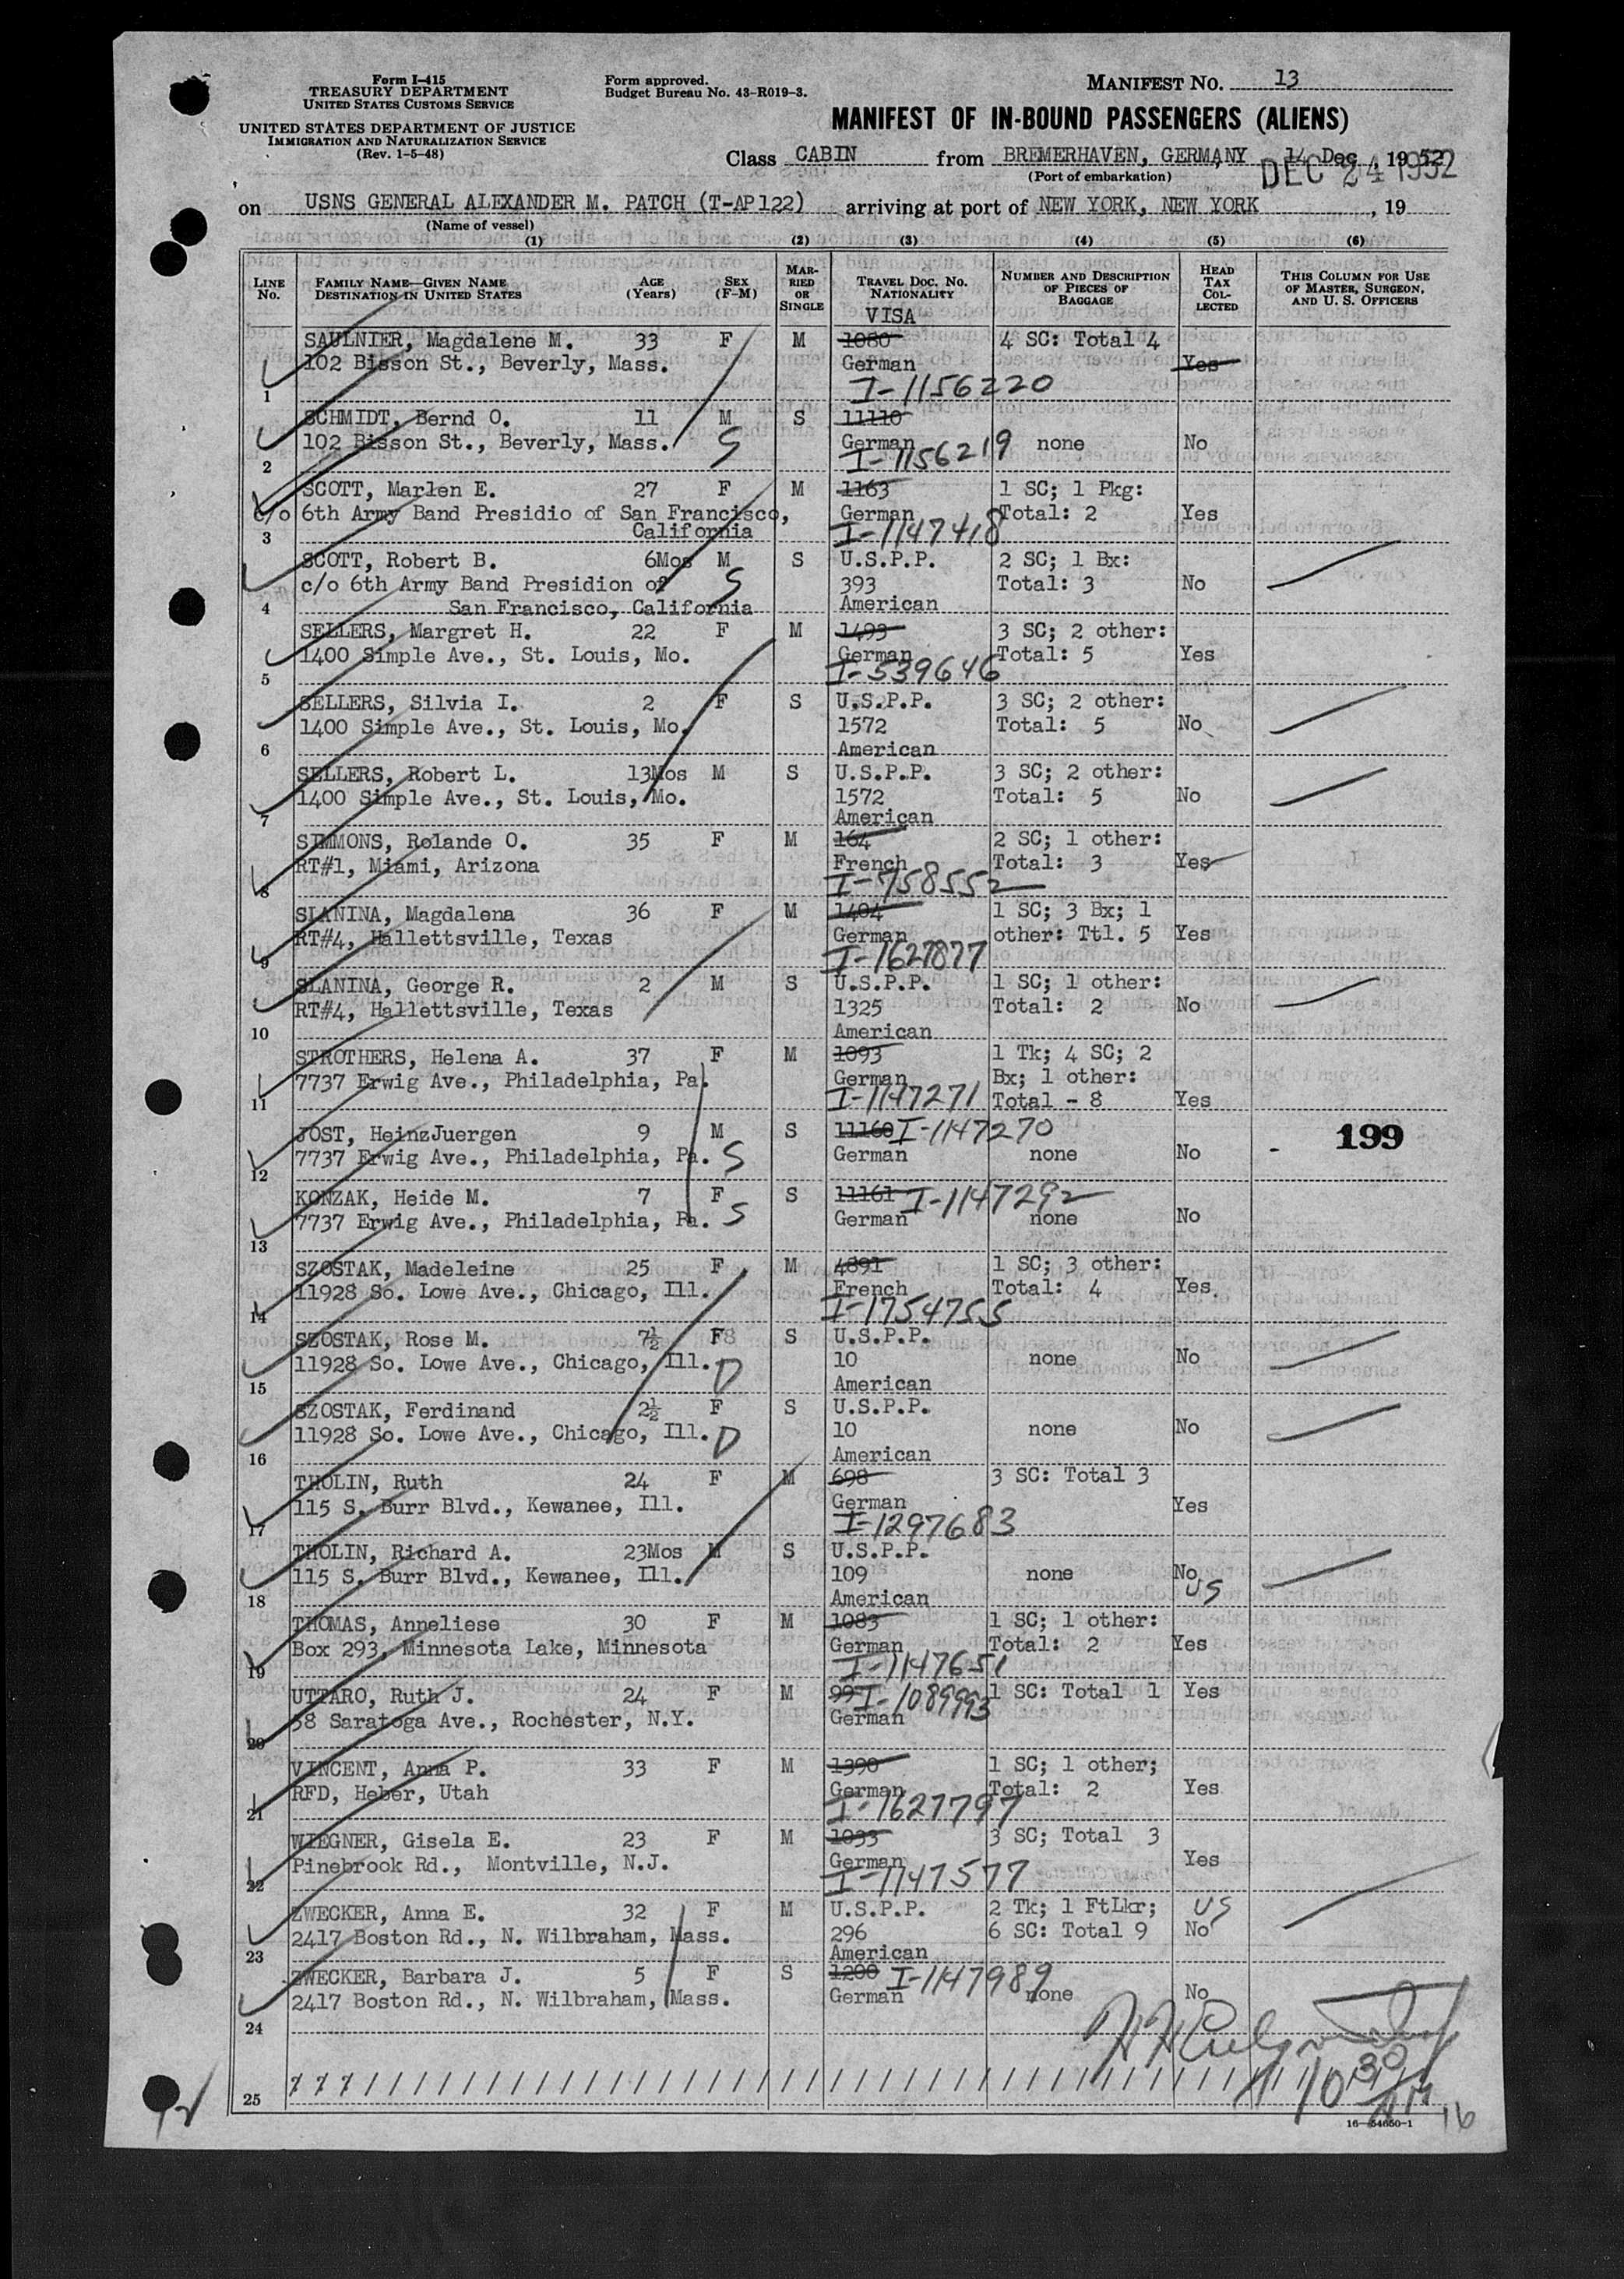 Form I-415
TREASURY DEPARTMENT
UNITED STATES CUSTOMS SERVICE
UNITED STATES DEPARTMENT OF JUSTICE
IMMIGRATION AND NATURALIZATION SERVICE
(Rev. 1-5-48)
Form approved.
Budget Bureau No. 43-R019-3.
MANIFEST NO. 13
MANIFEST OF IN-BOUND PASSENGERS (ALIENS)
Class CABIN from BREMERHAVEN, GERMANY 14 Dec , 19 52
(Port of embarkation)
DEC 24 1952
on USNS GENERAL ALEXANDER M. PATCH (T-AP122) arriving at port of NEW YORK, NEW YORK , 19
(Name of vessel)
(1) (2) (3) (4) (5) (6)
LINE NO. FAMILY NAME—GIVEN NAME DESTINATION IN UNITED STATES AGE (YEARS) SEX (F-M) MARRIED OR SINGLE TRAVEL DOC. NO. NATIONALITY NUMBER AND DESCRIPTION OF PIECES OF BAGGAGE HEAD TAX COLLECTED THIS COLUMN FOR USE OF MASTER, SURGEON, AND U. S. OFFICERS
VISA
SAULNIER, Magdalene M. 33 F M 1080 4 SC: Total 4
102 Bisson St., Beverly, Mass. German Yes
1 I-1156220
SCHMIDT, Bernd O. 11 M S 11110
102 Bisson St., Beverly, Mass. S German none No
2 I-1156219
SCOTT, Marlen E. 27 F M 1163 1 SC; 1 Pkg:
c/o 6th Army Band Presidio of San Francisco, German Total: 2 Yes
3 California I-1147418
SCOTT, Robert B. 6Mos M S U.S.P.P. 2 SC; 1 Bx:
c/o 6th Army Band Presidion of S 393 Total: 3 No
4 San Francisco, California American
SELLERS, Margret H. 22 F M 1493 3 SC; 2 other:
1400 Simple Ave., St. Louis, Mo. German Total: 5 Yes
5 I-539646
SELLERS, Silvia I. 2 F S U.S.P.P. 3 SC; 2 other:
1400 Simple Ave., St. Louis, Mo. 1572 Total: 5 No
6 American
SELLERS, Robert L. 13Mos M S U.S.P.P. 3 SC; 2 other:
1400 Simple Ave., St. Louis, Mo. 1572 Total: 5 No
7 American
SIMMONS, Rolande O. 35 F M 164 2 SC; 1 other:
RT#1, Miami, Arizona French Total: 3 Yes
8 I-758552
SLANINA, Magdalena 36 F M 1404 1 SC; 3 Bx; 1
RT#4, Hallettsville, Texas German other: Ttl. 5 Yes
9 I-1627877
SLANINA, George R. 2 M S U.S.P.P. 1 SC; 1 other:
RT#4, Hallettsville, Texas 1325 Total: 2 No
10 American
STROTHERS, Helena A. 37 F M 1093 1 Tk; 4 SC; 2
7737 Erwig Ave., Philadelphia, Pa. German Bx; 1 other:
11 I-1147271 Total - 8 Yes
JOST, HeinzJuergen 9 M S 11160 I-1147270
7737 Erwig Ave., Philadelphia, Pa. S German none No - 199
12
KONZAK, Heide M. 7 F S 11161 I-1147292
7737 Erwig Ave., Philadelphia, Pa. S German none No
13
SZOSTAK, Madeleine 25 F M 4891 1 SC; 3 other:
11928 So. Lowe Ave., Chicago, Ill. French Total: 4 Yes
14 I-1754755
SZOSTAK, Rose M. 7½ F S U.S.P.P.
11928 So. Lowe Ave., Chicago, Ill. D 10 none No
15 American
SZOSTAK, Ferdinand 2½ F S U.S.P.P.
11928 So. Lowe Ave., Chicago, Ill. D 10 none No
16 American
THOLIN, Ruth 24 F M 698 3 SC: Total 3
115 S. Burr Blvd., Kewanee, Ill. German Yes
17 I-1297683
THOLIN, Richard A. 23Mos M S U.S.P.P.
115 S. Burr Blvd., Kewanee, Ill. 109 none No
18 American US
THOMAS, Anneliese 30 F M 1083 1 SC; 1 other:
Box 293, Minnesota Lake, Minnesota German Total: 2 Yes
19 I-1147651
UTTARO, Ruth J. 24 F M 99 I-1089993 1 SC: Total 1 Yes
38 Saratoga Ave., Rochester, N.Y. German
20
VINCENT, Anna P. 33 F M 1390 1 SC; 1 other;
RFD, Heber, Utah German Total: 2 Yes
21 I-1627797
WIEGNER, Gisela E. 23 F M 1033 3 SC; Total 3
Pinebrook Rd., Montville, N.J. German Yes
22 I-1147577
ZWECKER, Anna E. 32 F M U.S.P.P. 2 Tk; 1 FtLkr; US
2417 Boston Rd., N. Wilbraham, Mass. 296 6 SC: Total 9 No
23 American
ZWECKER, Barbara J. 5 F S 1200 I-1147989
2417 Boston Rd., N. Wilbraham, Mass. German none No
24
25
10 30 AM
16—54650-1 16